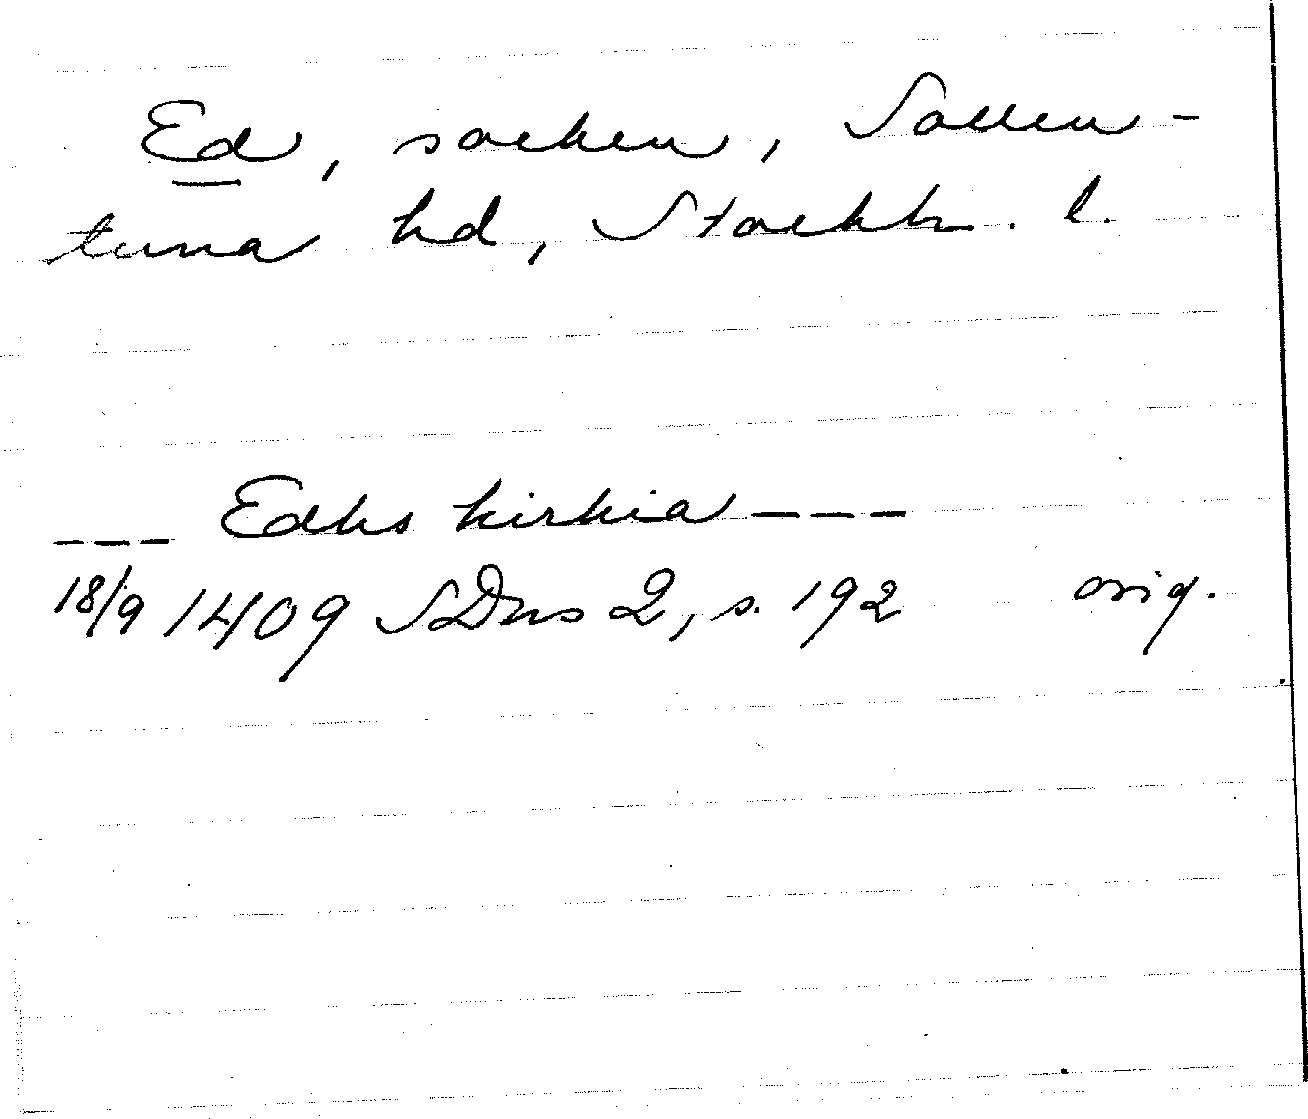 Ed, socken, Sollen-
tuna hd, Stockh. l.
--- Edhs kirkia ---
18/9 1409 SDns 2, s. 192 orig.